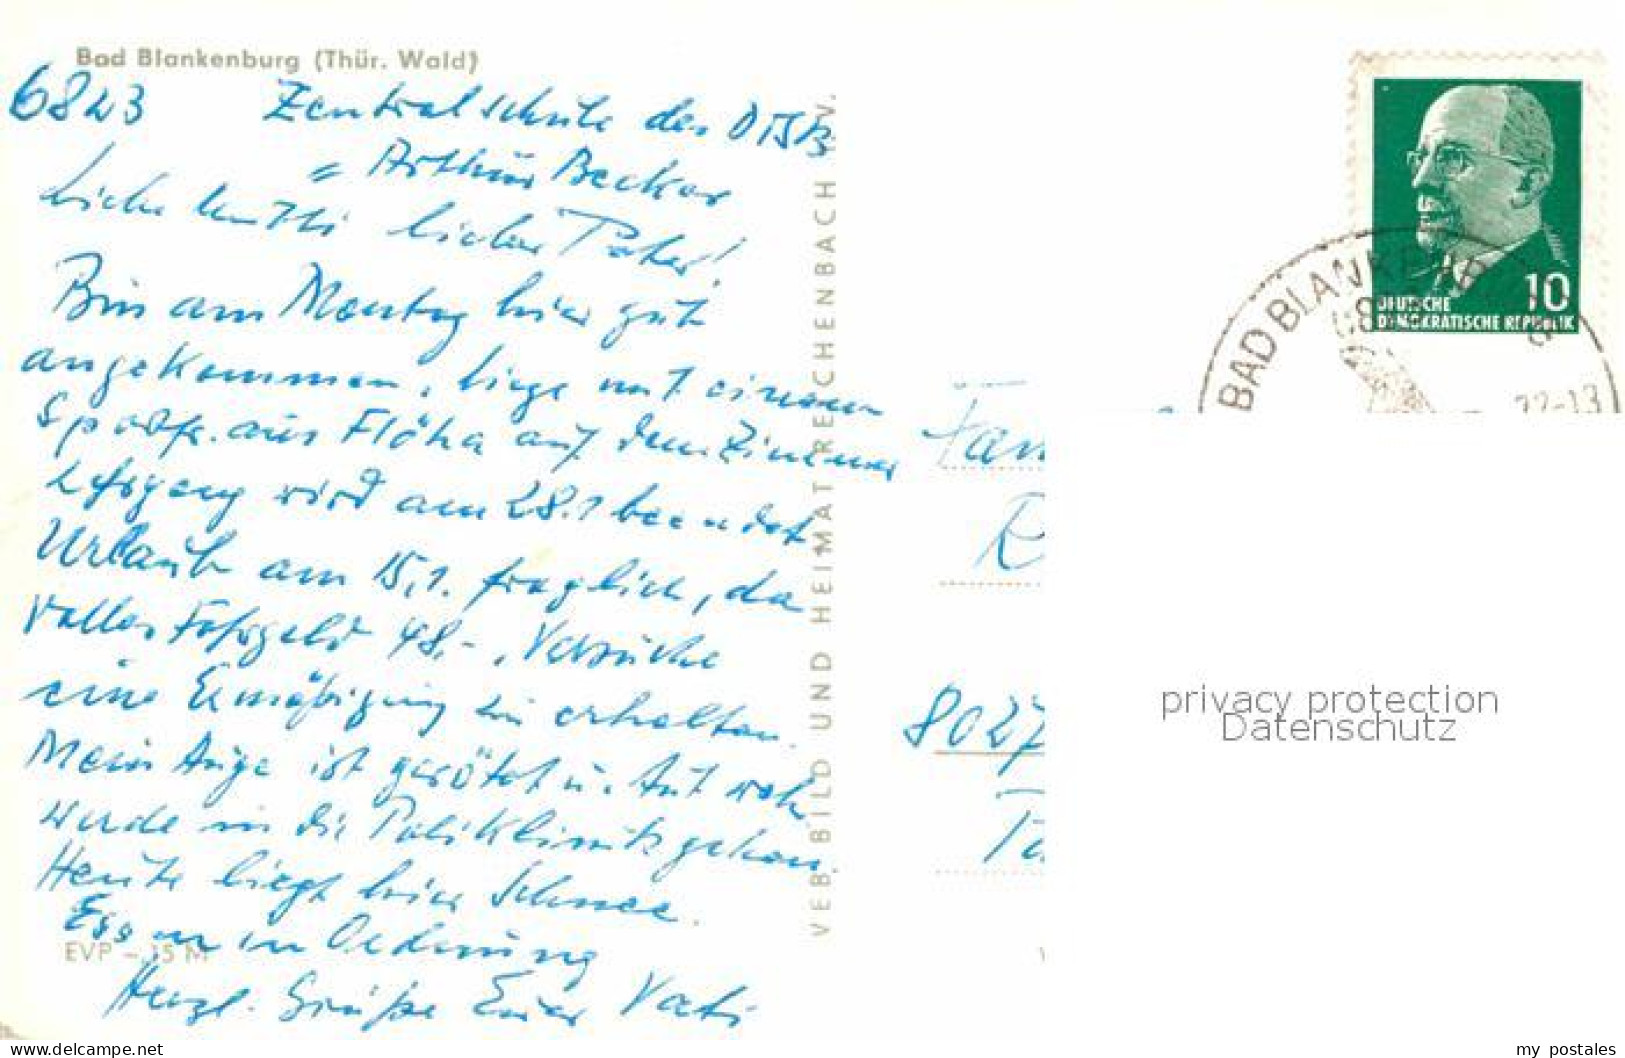 Bad Blankenburg (Thür. Wald)
6823 Zentralschule des DTSB
" Arthur Becker
Liebe Mutti lieber Peter!
Bin am Montag hier gut
angekommen, liege mit einem
Sportfr. aus Flöha auf dem Zimmer
Lehrgang wird am 28.1 beendet
Urlaub am 15.1. fraglich, da
voller Fahrgeld 48,-. Versuche
eine Ermäßigung zu erhalten.
Mein Auge ist gerötet u. tut weh
werde in die Poliklinik gehen.
Heute liegt hier Schnee.
Essen in Ordnung
Herzl. Grüße Euer Vati
EVP – 15 M
VEB BILD UND HEIMAT REICHENBACH I. V.
10
DEUTSCHE
DEMOKRATISCHE REPUBLIK
BAD BLANKENBURG
22-13
Fam
R
8027
privacy protection
Datenschutz
www.delcampe.net
my_postales